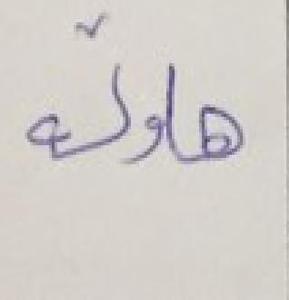 هاوڵە